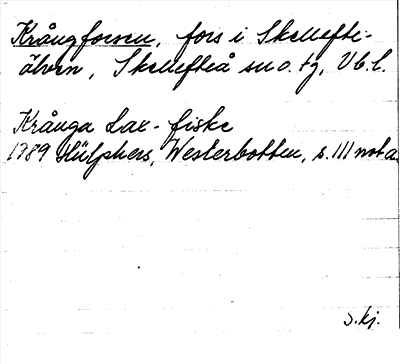 Krångforsen, fors i Skellefte-
älven, Skellefteå sn o. tg, Vb. l.
Krånga Lax-fiske
1789 Hülphers, Westerbotten, s. 111 not a.
S. kj.